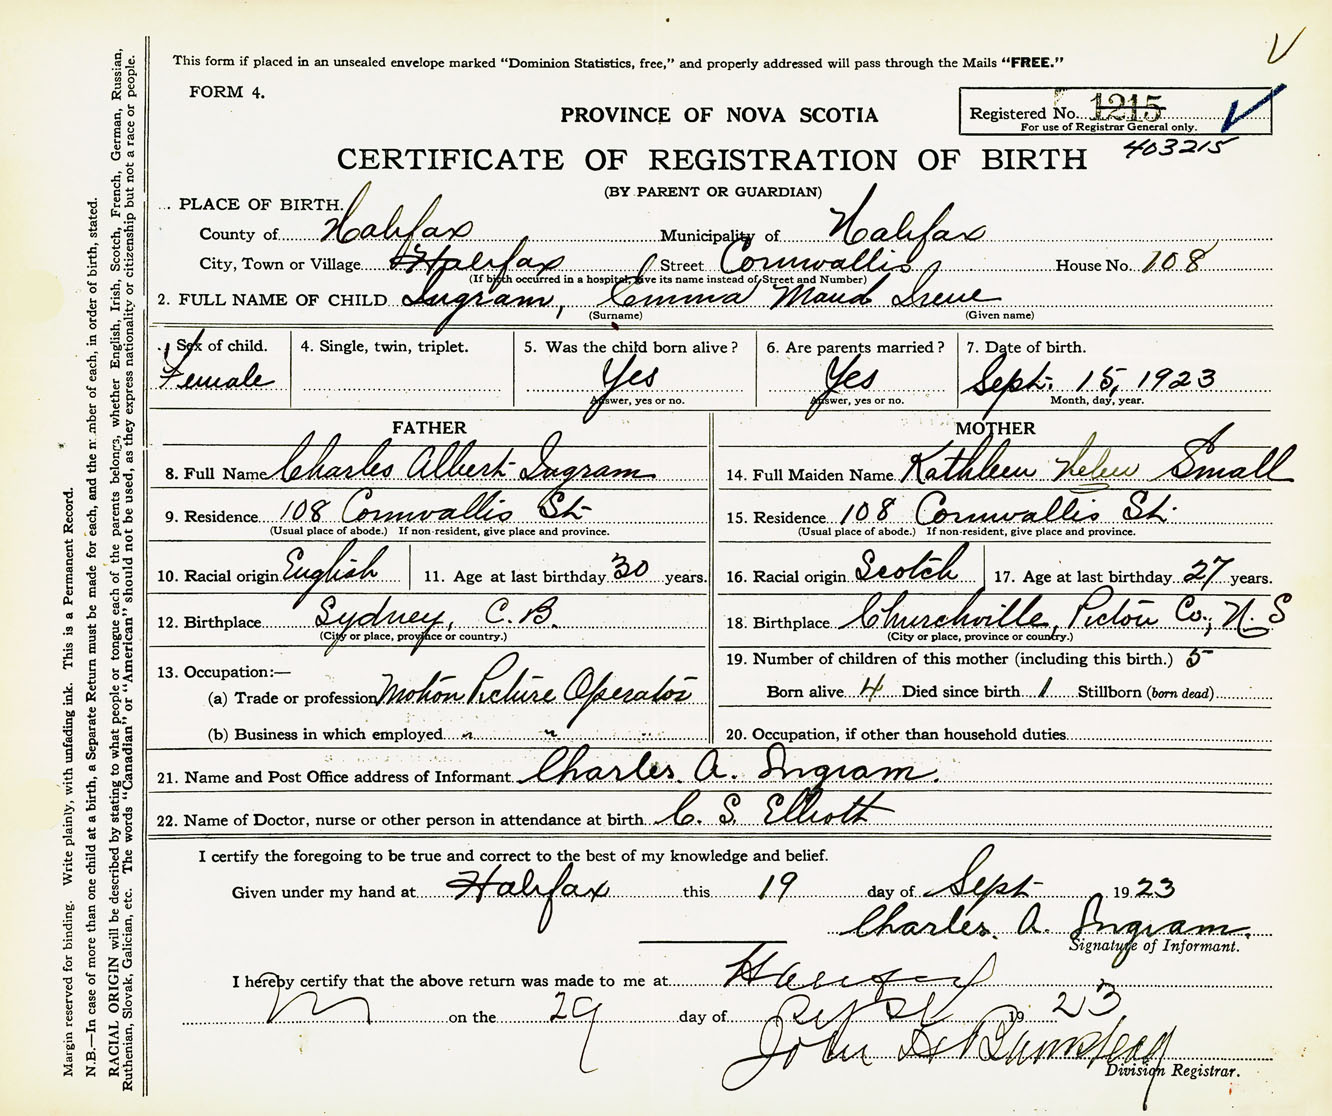 This form if placed in an unsealed envelope marked "Dominion Statistics, free," and properly addressed will pass through the Mails "FREE."
FORM 4.
PROVINCE OF NOVA SCOTIA
Registered No. 1215
For use of Registrar General only.
403215
CERTIFICATE OF REGISTRATION OF BIRTH
(BY PARENT OR GUARDIAN)
PLACE OF BIRTH.
County of Halifax Municipality of Halifax
City, Town or Village Halifax Street Cornwallis House No. 108
(If birth occurred in a hospital, give its name instead of Street and Number)
2. FULL NAME OF CHILD Ingram, Emma Maud Irene
(Surname) (Given name)
Sex of child. 4. Single, twin, triplet. 5. Was the child born alive? 6. Are parents married? 7. Date of birth.
Female Yes Yes Sept. 15, 1923
Answer, yes or no. Answer, yes or no. Month, day, year.
FATHER
8. Full Name Charles Albert Ingram
9. Residence 108 Cornwallis St.
(Usual place of abode.) If non-resident, give place and province.
10. Racial origin English 11. Age at last birthday 30 years.
12. Birthplace Sydney, C. B.
(City or place, province or country.)
13. Occupation:—
(a) Trade or profession Motion Picture Operator
(b) Business in which employed " "
MOTHER
14. Full Maiden Name Kathleen Helen Small
15. Residence 108 Cornwallis St.
(Usual place of abode.) If non-resident, give place and province.
16. Racial origin Scotch 17. Age at last birthday 27 years.
18. Birthplace Churchville, Pictou Co., N. S
(City or place, province or country.)
19. Number of children of this mother (including this birth.) 5
Born alive 4 Died since birth 1 Stillborn (born dead)
20. Occupation, if other than household duties
21. Name and Post Office address of Informant Charles. A. Ingram.
22. Name of Doctor, nurse or other person in attendance at birth C. S. Elliott
I certify the foregoing to be true and correct to the best of my knowledge and belief.
Given under my hand at Halifax this 19 day of Sept 1923
Charles. A. Ingram.
Signature of Informant.
I hereby certify that the above return was made to me at Halifax
on the 29 day of Sept 1923
John
Division Registrar.
Margin reserved for binding. Write plainly, with unfading ink. This is a Permanent Record.
N.B.—In case of more than one child at a birth, a Separate Return must be made for each, and the number of each, in order of birth, stated.
RACIAL ORIGIN will be described by stating to what people or tongue each of the parents belongs, whether English, Irish, Scotch, French, German, Russian,
Ruthenian, Slovak, Galician, etc. The words "Canadian" or "American" should not be used, as they express nationality or citizenship but not a race or people.